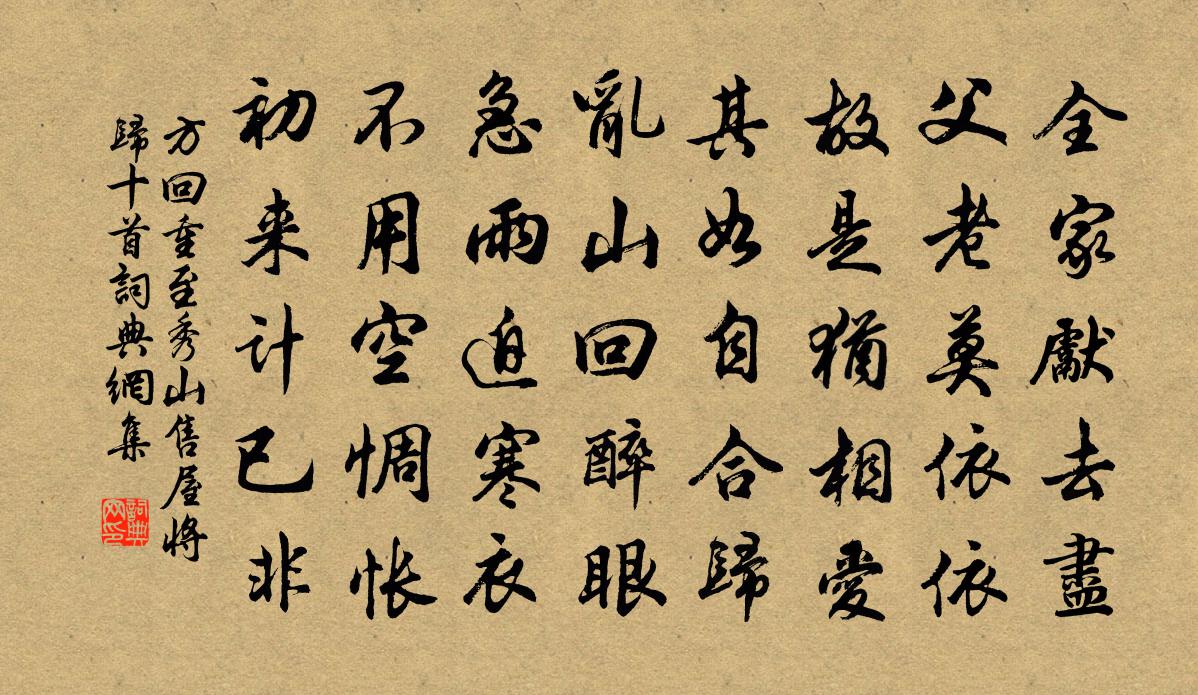 全家獻去盡
父老莫依依
故是猶相愛
其如自合歸
亂山回醉眼
急雨迫寒衣
不用空惆怅
初来计已非
方回重至秀山售屋將
歸十首詞典網集
詞典
网印